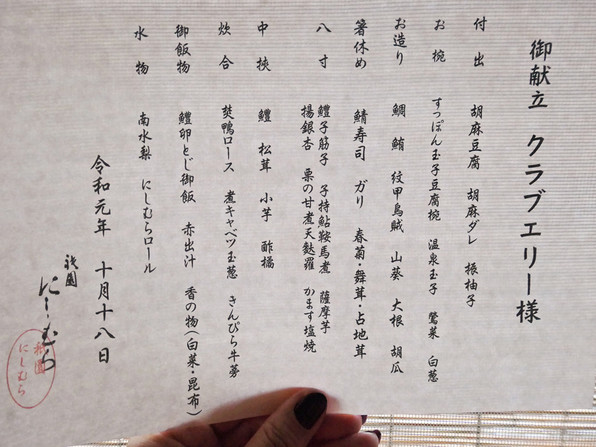 御献立 クラブエリー様
付出 胡麻豆腐 胡麻ダレ 振柚子
お椀 すっぽん玉子豆腐椀 温泉玉子 鶯菜 白葱
お造り 鯛 鮪 紋甲烏賊 山葵 大根 胡瓜
箸休め 鯖寿司 ガリ 春菊・舞茸・占地茸
八寸 鱧子筋子 子持鮎鞍馬煮 薩摩芋
揚銀杏 栗の甘煮天麩羅 かます塩焼
中挟 鱧 松茸 小芋 酢橘
炊合 炙鴨ロース 煮キャベツ玉葱 きんぴら牛蒡
御飯物 鱧卵とじ御飯 赤出汁 香の物(白菜・昆布)
水物 南水梨 にしむらロール
令和元年 十月十八日
祇園 にしむら
祇園
にしむら